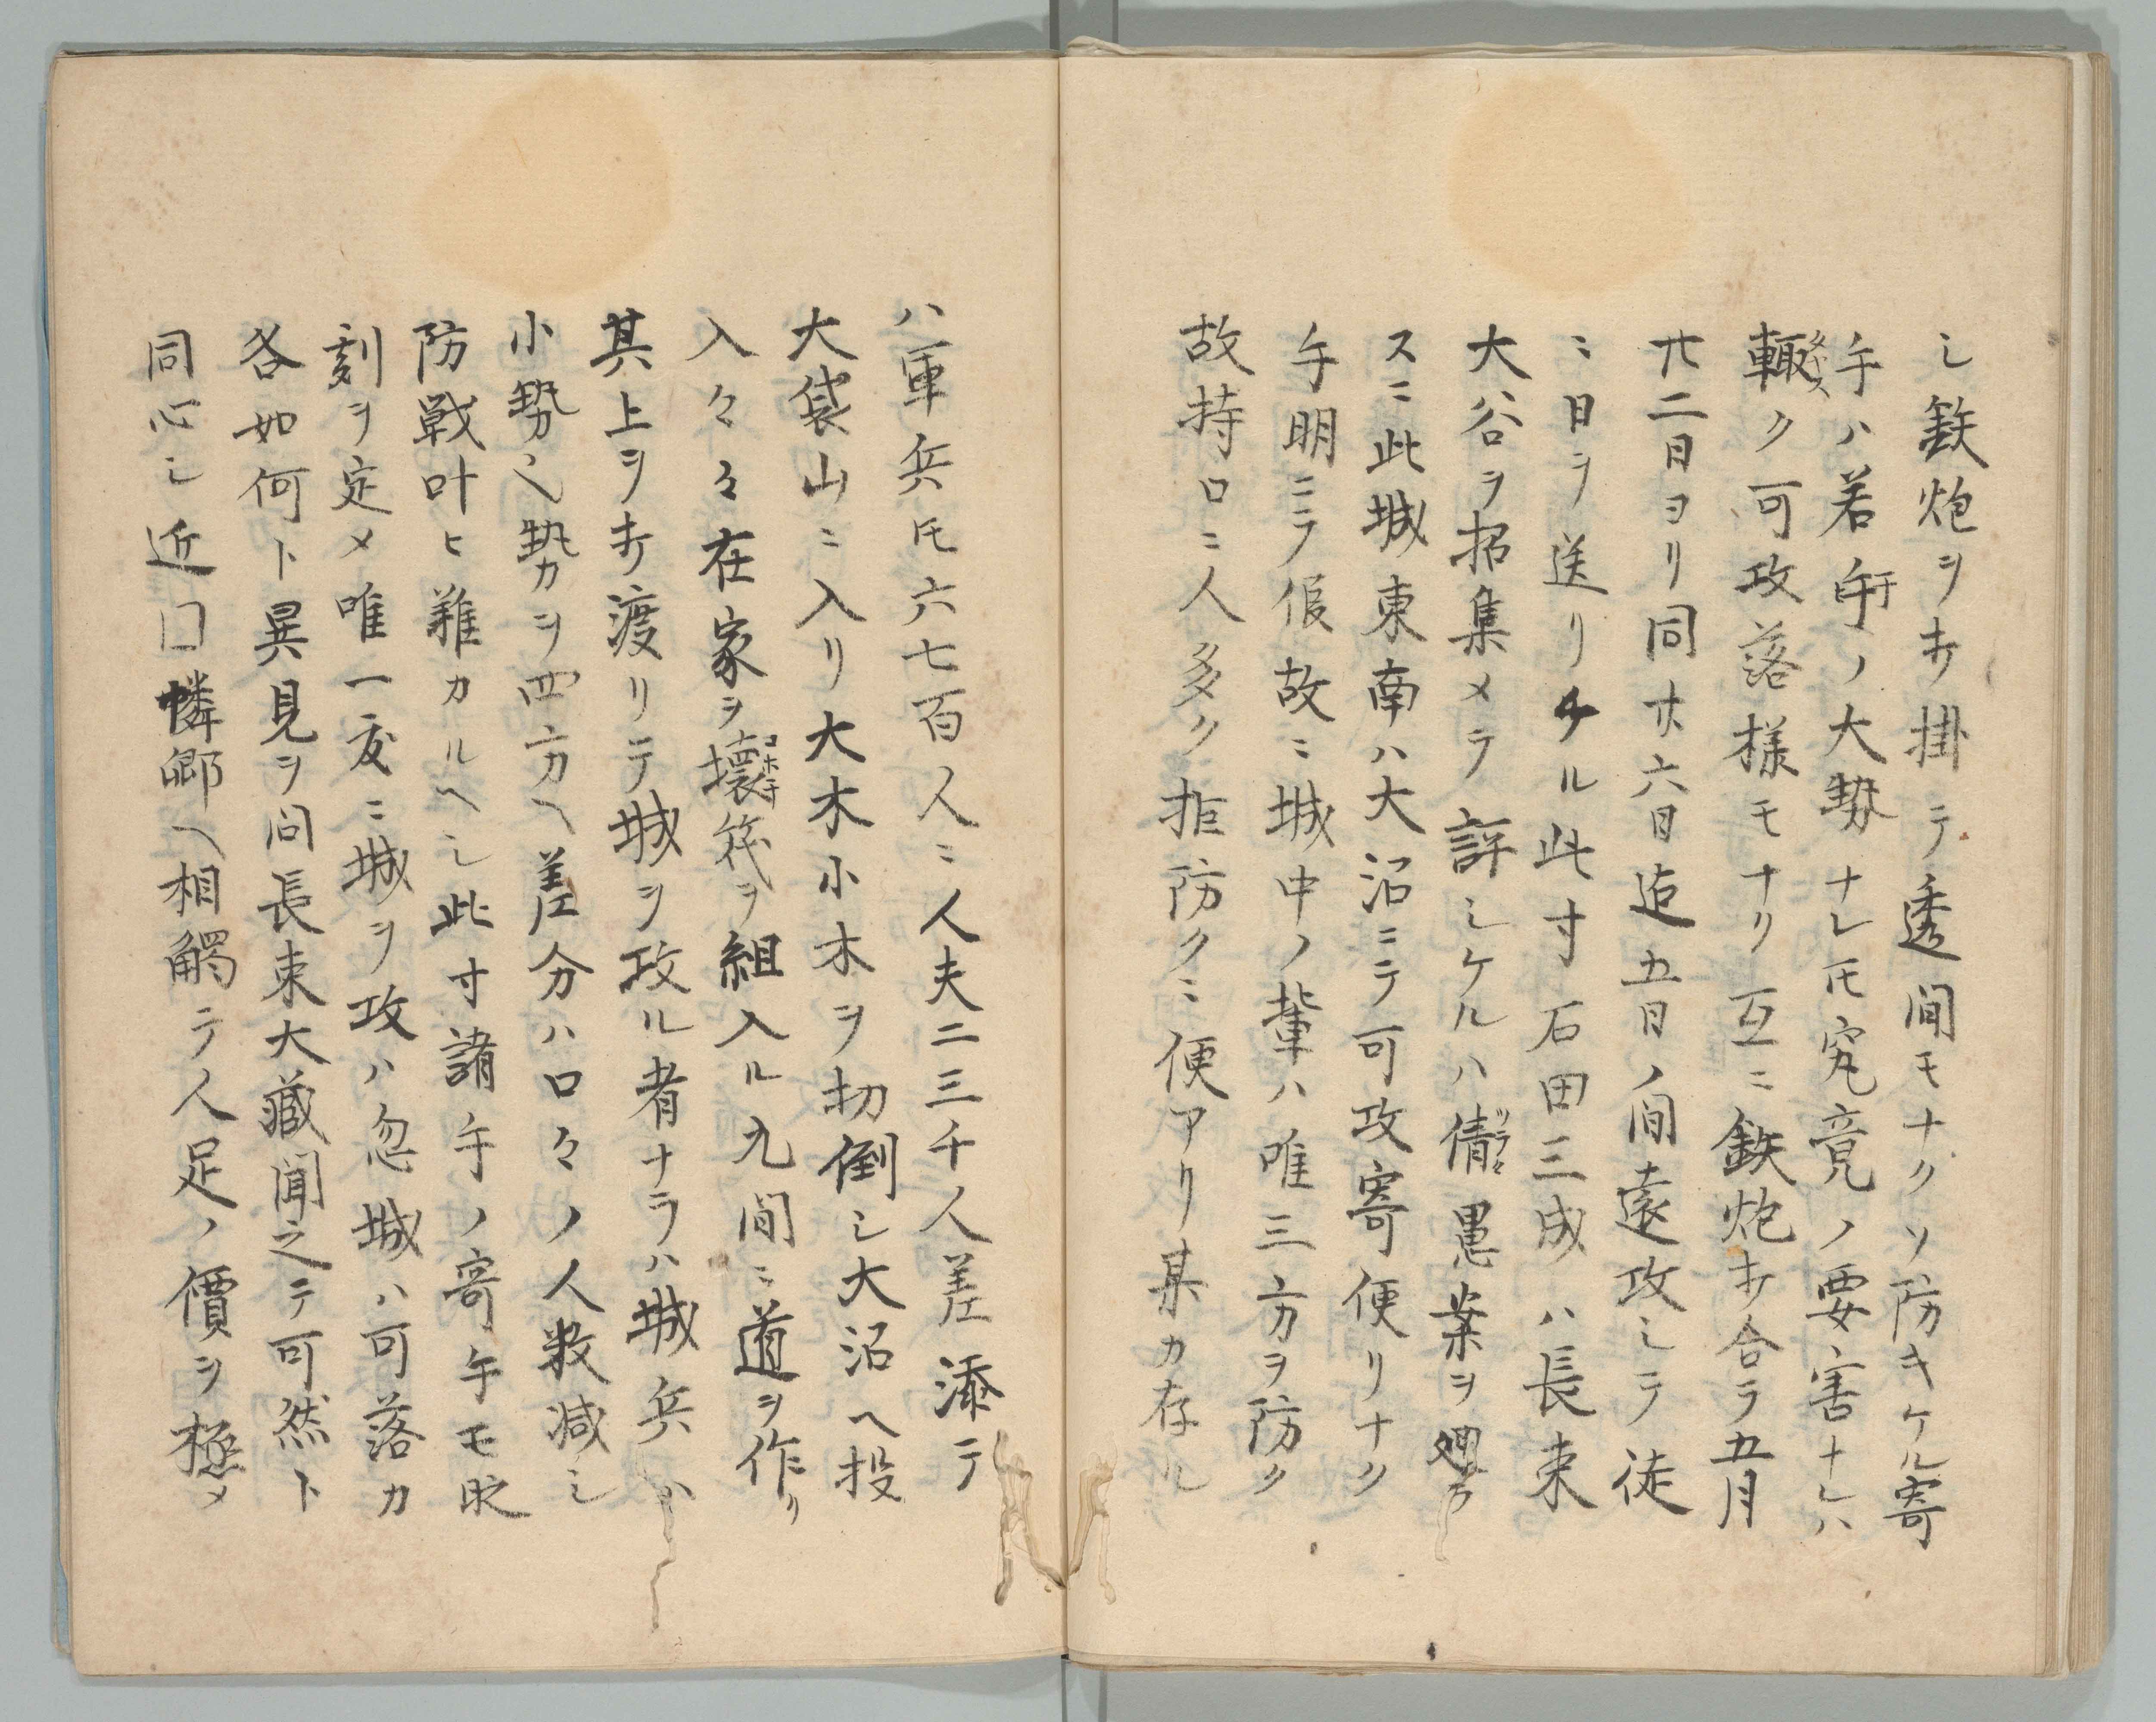 シ鉄炮ヲ打掛テ透間モナクソ防キケル寄
手ハ若干ノ大勢ナレ𪜈究竟ノ要害ナレハ
輙ク可攻落様モナリ互ニ鉄炮打合ラ五月
廿二日ヨリ同廿六日迠五日ノ間遠攻シテ徒
ニ日ヲ送リケル此寸石田三成ハ長束
大谷ヲ招集メテ評シケルハ倩愚案ヲ廻ラ
スニ此城東南ハ大沼ニテ可攻寄便リナク
手明ニテ候故ニ城中ノ輩ハ唯三方ヲ防ク
故持口ニ人多ク拒防クニ便アリ某カ存ル
ハ軍兵𪜈六七百人ニ人夫二三千人差添テ
大袋山ニ入リ大木小木ヲ切倒シ大沼ヘ投
入々々在家ヲ壊筏ヲ組入ル九間ニ道ヲ作リ
其上ヲ打渡リテ城ヲ攻ル者ナラハ城兵ハ
小勢也勢力ヲ四方ヘ差分ハ口々ノ人数减シ
防戦叶ヒ難カルヘシ此寸諸手ノ寄手モ
刻ヲ定メ唯一度ニ城ヲ攻ハ忽城ハ可落カ
各如何ト異見ヲ问長束大藏聞之テ可然ト
同心シ近口憐郷ヘ相觸テ人足ノ價ヲ極メ